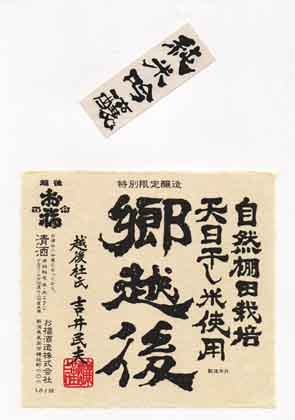 純米吟醸
特別限定醸造
自然棚田栽培
天日干し米使用
郷越後
越後杜氏 吉井民夫
越後
お福
清酒
お福酒造株式会社